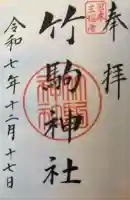 奉拝
竹駒神社
令和七年十二月十七日